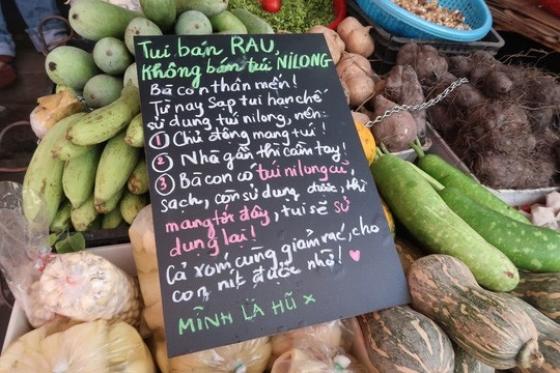 Tui bán RAU,
Không bán túi NILONG
Bà con thân mến!
Từ nay Sạp tui hạn chế
sử dụng túi nilong, nên:
① Chủ động mang túi!
② Nhà gần thì cầm tay!
③ Bà con có túi nilong cũ,
sạch, còn sử dụng được, thì
mang tới đây, tui sẽ sử
dụng lại!
Cả xóm cùng giảm rác, cho
con nít được nhờ! ♥
MÌNH LÀ HŨ x